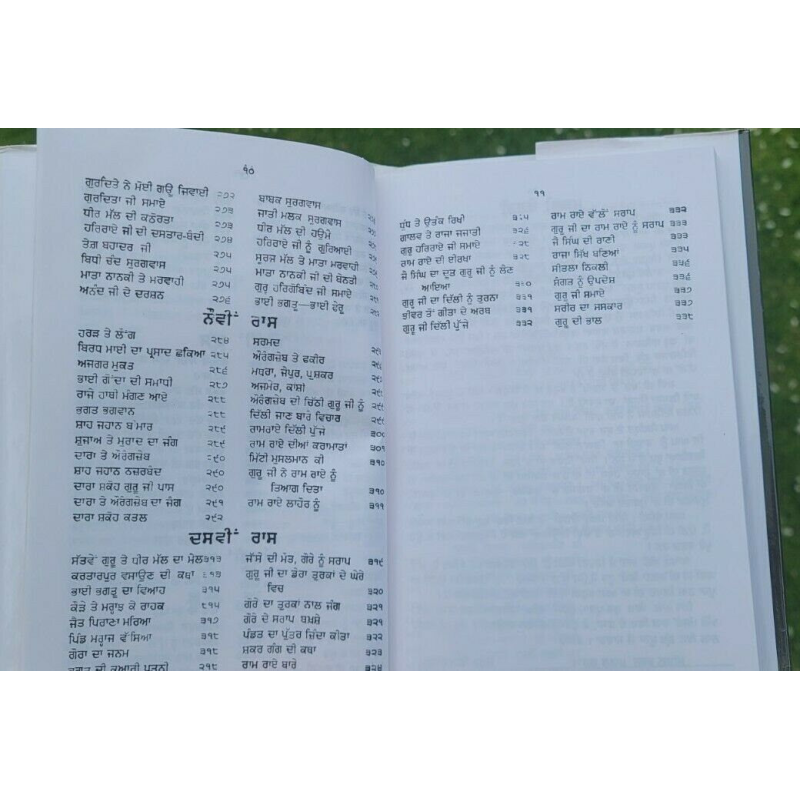 ੧੦
ਗੁਰਦਿਤੇ ਨੇ ਮੋਈ ਗਊ ਜਿਵਾਈ ੨੭੨
ਗੁਰਦਿਤਾ ਜੀ ਸਮਾਏ ੨੭੩
ਧੀਰ ਮੱਲ ਦੀ ਕਠੋਰਤਾ ੨੭੩
ਹਰਿਰਾਏ ਜੀ ਦੀ ਦਸਤਾਰ-ਬੰਦੀ ੨੭੪
ਤੇਗ਼ ਬਹਾਦਰ ਜੀ ੨੭੫
ਬਿਧੀ ਚੰਦ ਸੁਰਗਵਾਸ ੨੭੫
ਮਾਤਾ ਨਾਨਕੀ ਤੇ ਮਰਵਾਹੀ ੨੭੫
ਅਨੰਦ ਜੀ ਦੇ ਦਰਸ਼ਨ ੨੭੬
ਬਾਬਕ ਸੁਰਗਵਾਸ
ਜਾਤੀ ਮਲਕ ਸੁਰਗਵਾਸ
ਧੀਰ ਮੱਲ ਦੀ ਹਉਮੈ
ਹਰਿਰਾਏ ਜੀ ਨੂੰ ਗੁਰਿਆਈ
ਸੂਰਜ ਮੱਲ ਤੇ ਮਾਤਾ ਮਰਵਾਹੀ
ਮਾਤਾ ਨਾਨਕੀ ਜੀ ਦੀ ਬੇਨਤੀ
ਗੁਰੂ ਹਰਿਗੋਬਿੰਦ ਜੀ ਸਮਾਏ
ਭਾਈ ਭਗਤੂ—ਭਾਈ ਫੇਰੂ
ਨੌਵੀਂ ਰਾਸ
ਹਰੜ ਤੇ ਲੌਂਗ ੨੮੪
ਬਿਰਧ ਮਾਈ ਦਾ ਪ੍ਰਸਾਦ ਛਕਿਆ ੨੮੫
ਅਜਗਰ ਮੁਕਤ ੨੮੬
ਭਾਈ ਗੋਂਦਾ ਦੀ ਸਮਾਧੀ ੨੮੭
ਰਾਜੇ ਹਾਥੀ ਮੰਗਣ ਆਏ ੨੮੮
ਭਗਤ ਭਗਵਾਨ ੨੮੮
ਸ਼ਾਹ ਜਹਾਨ ਬੀਮਾਰ ੨੮੯
ਸ਼ੁਜਾਅ ਤੇ ਮੁਰਾਦ ਦਾ ਜੰਗ ੨੮੯
ਦਾਰਾ ਤੇ ਔਰੰਗਜ਼ੇਬ ੨੯੦
ਸ਼ਾਹ ਜਹਾਨ ਨਜ਼ਰਬੰਦ ੨੯੦
ਦਾਰਾ ਸ਼ਕੋਹ ਗੁਰੂ ਜੀ ਪਾਸ ੨੯੦
ਦਾਰਾ ਤੇ ਔਰੰਗਜ਼ੇਬ ਦਾ ਜੰਗ ੨੯੧
ਦਾਰਾ ਸ਼ਕੋਹ ਕਤਲ ੨੯੨
ਸਰਮਦ
ਔਰੰਗਜ਼ੇਬ ਤੇ ਫਕੀਰ
ਮਥਰਾ, ਜੈਪੁਰ, ਪੁਸ਼ਕਰ
ਅਜਮੇਰ, ਕਾਂਸ਼ੀ
ਔਰੰਗਜ਼ੇਬ ਦੀ ਚਿੱਠੀ ਗੁਰੂ ਜੀ ਨੂੰ
ਦਿੱਲੀ ਜਾਣ ਬਾਰੇ ਵਿਚਾਰ
ਰਾਮਰਾਏ ਦਿੱਲੀ ਪੁੱਜੇ
ਰਾਮ ਰਾਏ ਦੀਆਂ ਕਰਾਮਾਤਾਂ
ਮਿੱਟੀ ਮੁਸਲਮਾਨ ਕੀ ੩੧੦
ਗੁਰੂ ਜੀ ਨੇ ਰਾਮ ਰਾਏ ਨੂੰ
ਤਿਆਗ ਦਿਤਾ ੩੧੦
ਰਾਮ ਰਾਏ ਲਾਹੌਰ ਨੂੰ ੩੧੧
ਦਸਵੀਂ ਰਾਸ
ਸੱਤਵੇਂ ਗੁਰੂ ਤੇ ਧੀਰ ਮੱਲ ਦਾ ਮੇਲ ੩੧੩
ਕਰਤਾਰਪੁਰ ਵਸਾਉਣ ਦੀ ਕਥਾ
ਭਾਈ ਭਗਤੂ ਦਾ ਵਿਆਹ ੩੧੫
ਕੌੜੇ ਤੇ ਮਰ੍ਹਾਝ ਕੇ ਰਾਹਕ
ਜੈਤ ਪਿਰਾਣਾ ਮਰਿਆ ੩੧੭
ਪਿੰਡ ਮਰ੍ਹਾਜ ਵੱਸਿਆ ੩੧੮
ਗੋਰਾ ਦਾ ਜਨਮ ੩੧੮
ਭਗਤੂ ਦੀ ਕੁਆਰੀ ਪਤਨੀ ੩੧੮
ਜੱਸੇ ਦੀ ਮੌਤ, ਗੌਰੇ ਨੂੰ ਸਰਾਪ ੩੧੯
ਗੁਰੂ ਜੀ ਦਾ ਡੇਰਾ ਤੁਰਕਾਂ ਦੇ ਘੇਰੇ
ਵਿਚ ੩੨੦
ਗੋਰੇ ਦਾ ਤੁਰਕਾਂ ਨਾਲ ਜੰਗ ੩੨੧
ਗੋਰੇ ਦੇ ਸਰਾਪ ਬਖਸ਼ੇ ੩੨੧
ਪੰਡਤ ਦਾ ਪੁੱਤਰ ਜ਼ਿੰਦਾ ਕੀਤਾ ੩੨੨
ਸ਼ਕਰ ਗੰਗ ਦੀ ਕਥਾ ੩੨੩
ਰਾਮ ਰਾਏ ਬਾਰੇ ੩੨੪
੧੧
ਧੁੰਧ ਤੇ ਉਤੰਕ ਰਿਖੀ ੩੨੫
ਗਾਲਵ ਤੇ ਰਾਜਾ ਜਜਾਤੀ ੩੨੬
ਗੁਰੂ ਹਰਿਰਾਏ ਜੀ ਸਮਾਏ ੩੨੮
ਰਾਮ ਰਾਏ ਦੀ ਈਰਖਾ ੩੨੮
ਜੈ ਸਿੰਘ ਦਾ ਦੂਤ ਗੁਰੂ ਜੀ ਨੂੰ ਲੈਣ
ਆਇਆ ੩੩੦
ਗੁਰੂ ਜੀ ਦਾ ਦਿੱਲੀ ਨੂੰ ਤੁਰਨਾ ੩੩੧
ਝੀਵਰ ਤੋਂ ਗੀਤਾ ਦੇ ਅਰਥ ੩੩੧
ਗੁਰੂ ਜੀ ਦਿੱਲੀ ਪੁੱਜੇ ੩੩੨
ਰਾਮ ਰਾਏ ਵੱਲੋਂ ਸਰਾਪ ੩੩੨
ਗੁਰੂ ਜੀ ਦਾ ਰਾਮ ਰਾਏ ਨੂੰ ਸਰਾਪ ੩੩੩
ਜੈ ਸਿੰਘ ਦੀ ਰਾਣੀ ੩੩੪
ਰਾਜਾ ਸਿੱਖ ਬਣਿਆ ੩੩੫
ਸੀਤਲਾ ਨਿਕਲੀ ੩੩੬
ਸੰਗਤ ਨੂੰ ਉਪਦੇਸ਼ ੩੩੬
ਗੁਰੂ ਜੀ ਸਮਾਏ ੩੩੭
ਸਰੀਰ ਦਾ ਸਸਕਾਰ ੩੩੭
ਗੁਰੂ ਦੀ ਭਾਲ ੩੩੮